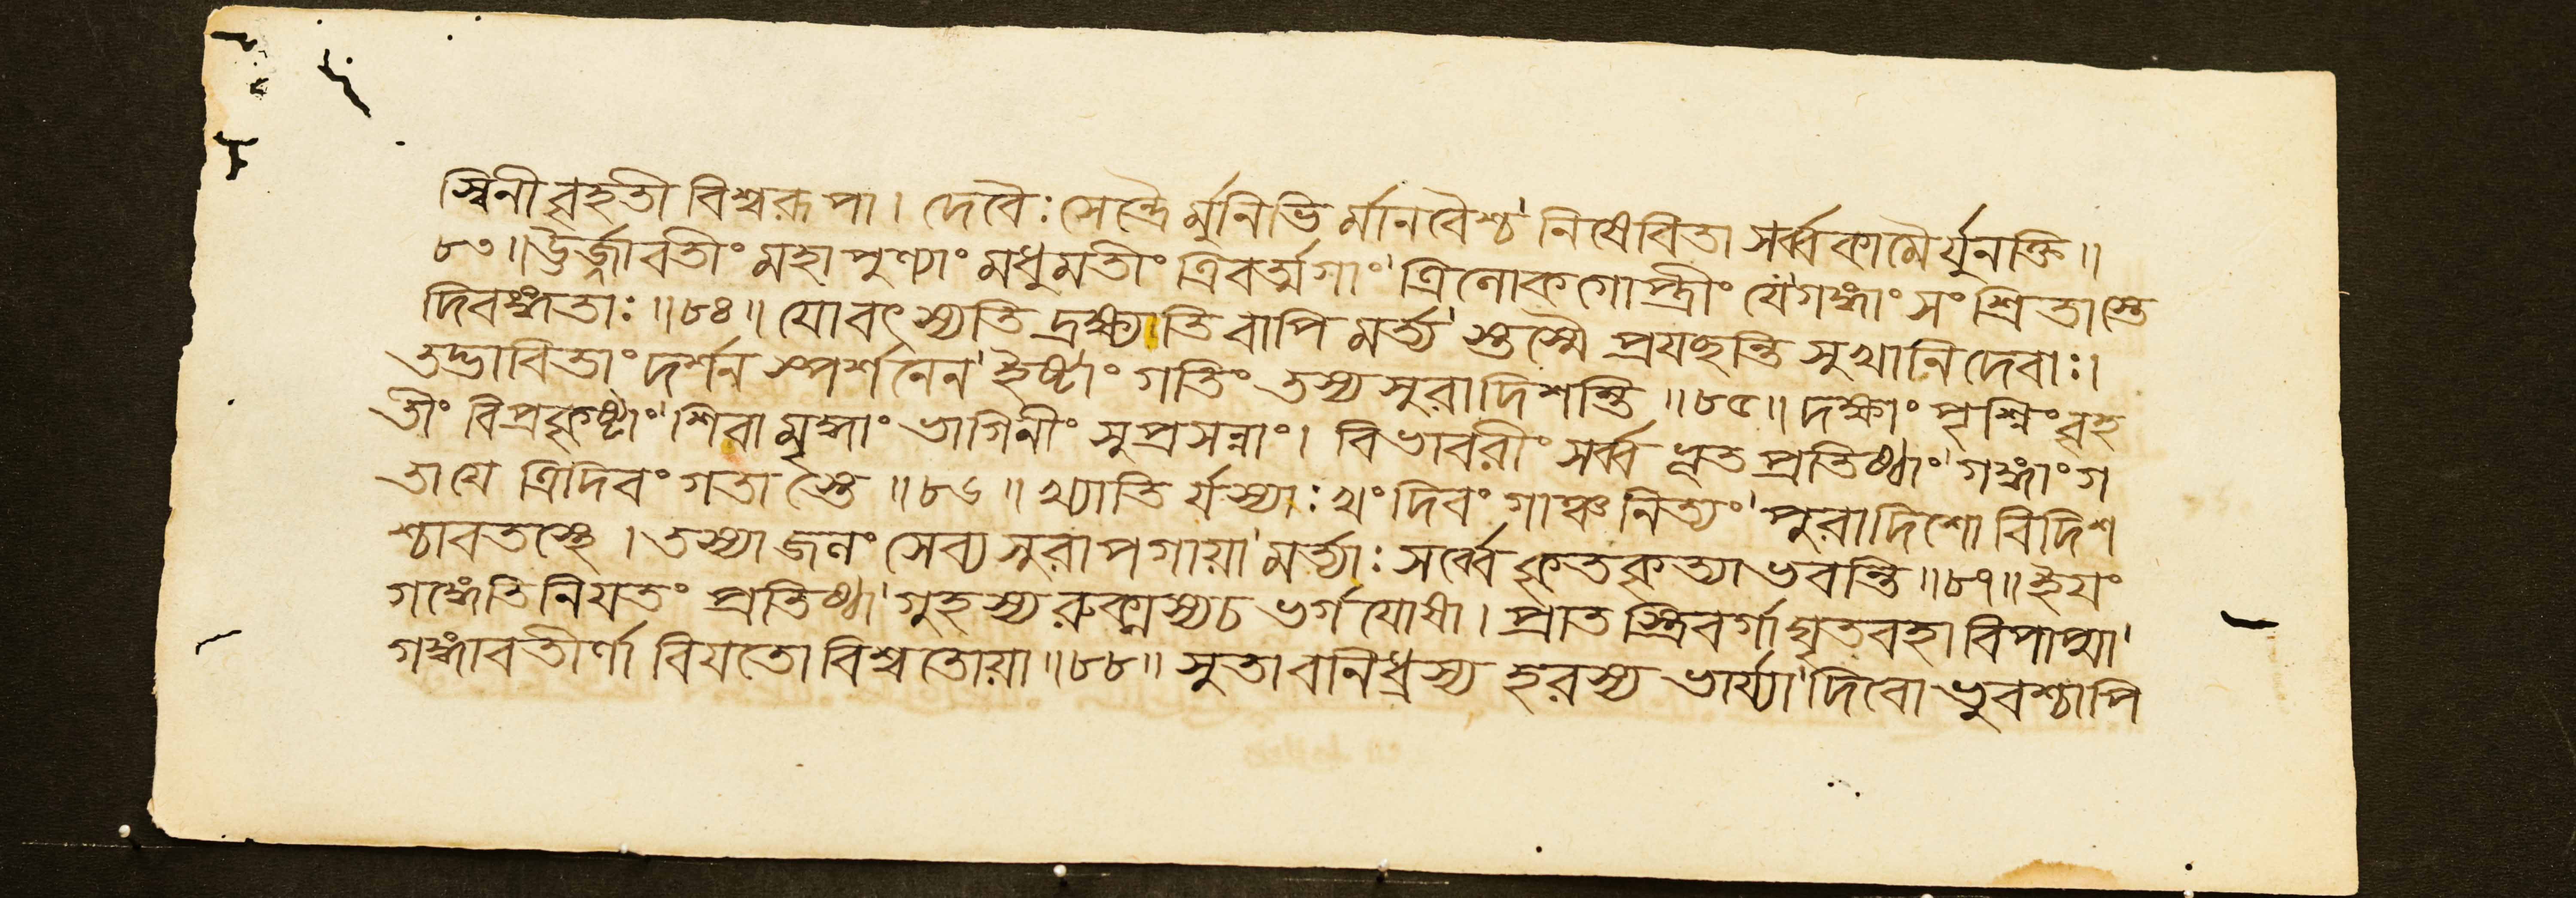 স্বিনী বৃহতী বিশ্বরূপা। দেবৈঃ সেন্দ্রৈর্মুনিভির্মানবৈশ্চ' নিষেবিতা সর্ব্বকামৈর্যুনক্তি॥
৮৩॥ উর্জ্জাবতীং মহাপুণ্যাং মধুমতীং ত্রিবর্ত্মগাং' ত্রিলোকগোপ্ত্রীং যে' গঙ্গাং সংশ্রিতাস্তে
দিবঙ্গতাঃ॥৮৪॥ যো বৎস্যতি দ্রক্ষ্যতি বাপি মর্ত্য' স্তস্মৈ প্রযছন্তি সুখানি দেবাঃ।
তদ্ভাবিতাং দর্শন স্পর্শনেন' ইষ্টাং গতিং তস্য সুরা দিশন্তি॥৮৫॥ দক্ষাং পৃশ্নিং বৃহ
তীং বিপ্রকৃষ্টাং' শিবামৃদ্ধাং ভাগিনীং সুপ্রসন্নাং। বিভাবরীং সর্ব্বভূতপ্রতিষ্ঠাং' গঙ্গাং গ
তা যে ত্রিদিবং গতাস্তে॥৮৬॥ খ্যাতির্যস্যাঃ খং দিবং গাঞ্চ নিত্যং' পুরা দিশো বিদিশ
শ্চাবতস্থে। তস্যা জলং সেব্য সুরাপগায়া' মর্ত্যাঃ সর্ব্বে কৃতকৃত্যা ভবন্তি॥৮৭॥ ইয়ং
গঙ্গেতি নিয়তং প্রতিষ্ঠা' গুহস্য রুক্মস্য চ ভর্গযোষা। প্রাতস্ত্রিবর্গা ঘৃতবহা বিপাপ্মা'
গঙ্গাবতীর্ণা বিয়তো বিশ্বতোয়া॥৮৮॥ সুতাবনিধ্রস্য হরস্য ভার্য্যা' দিবো ভুবশ্চাপি